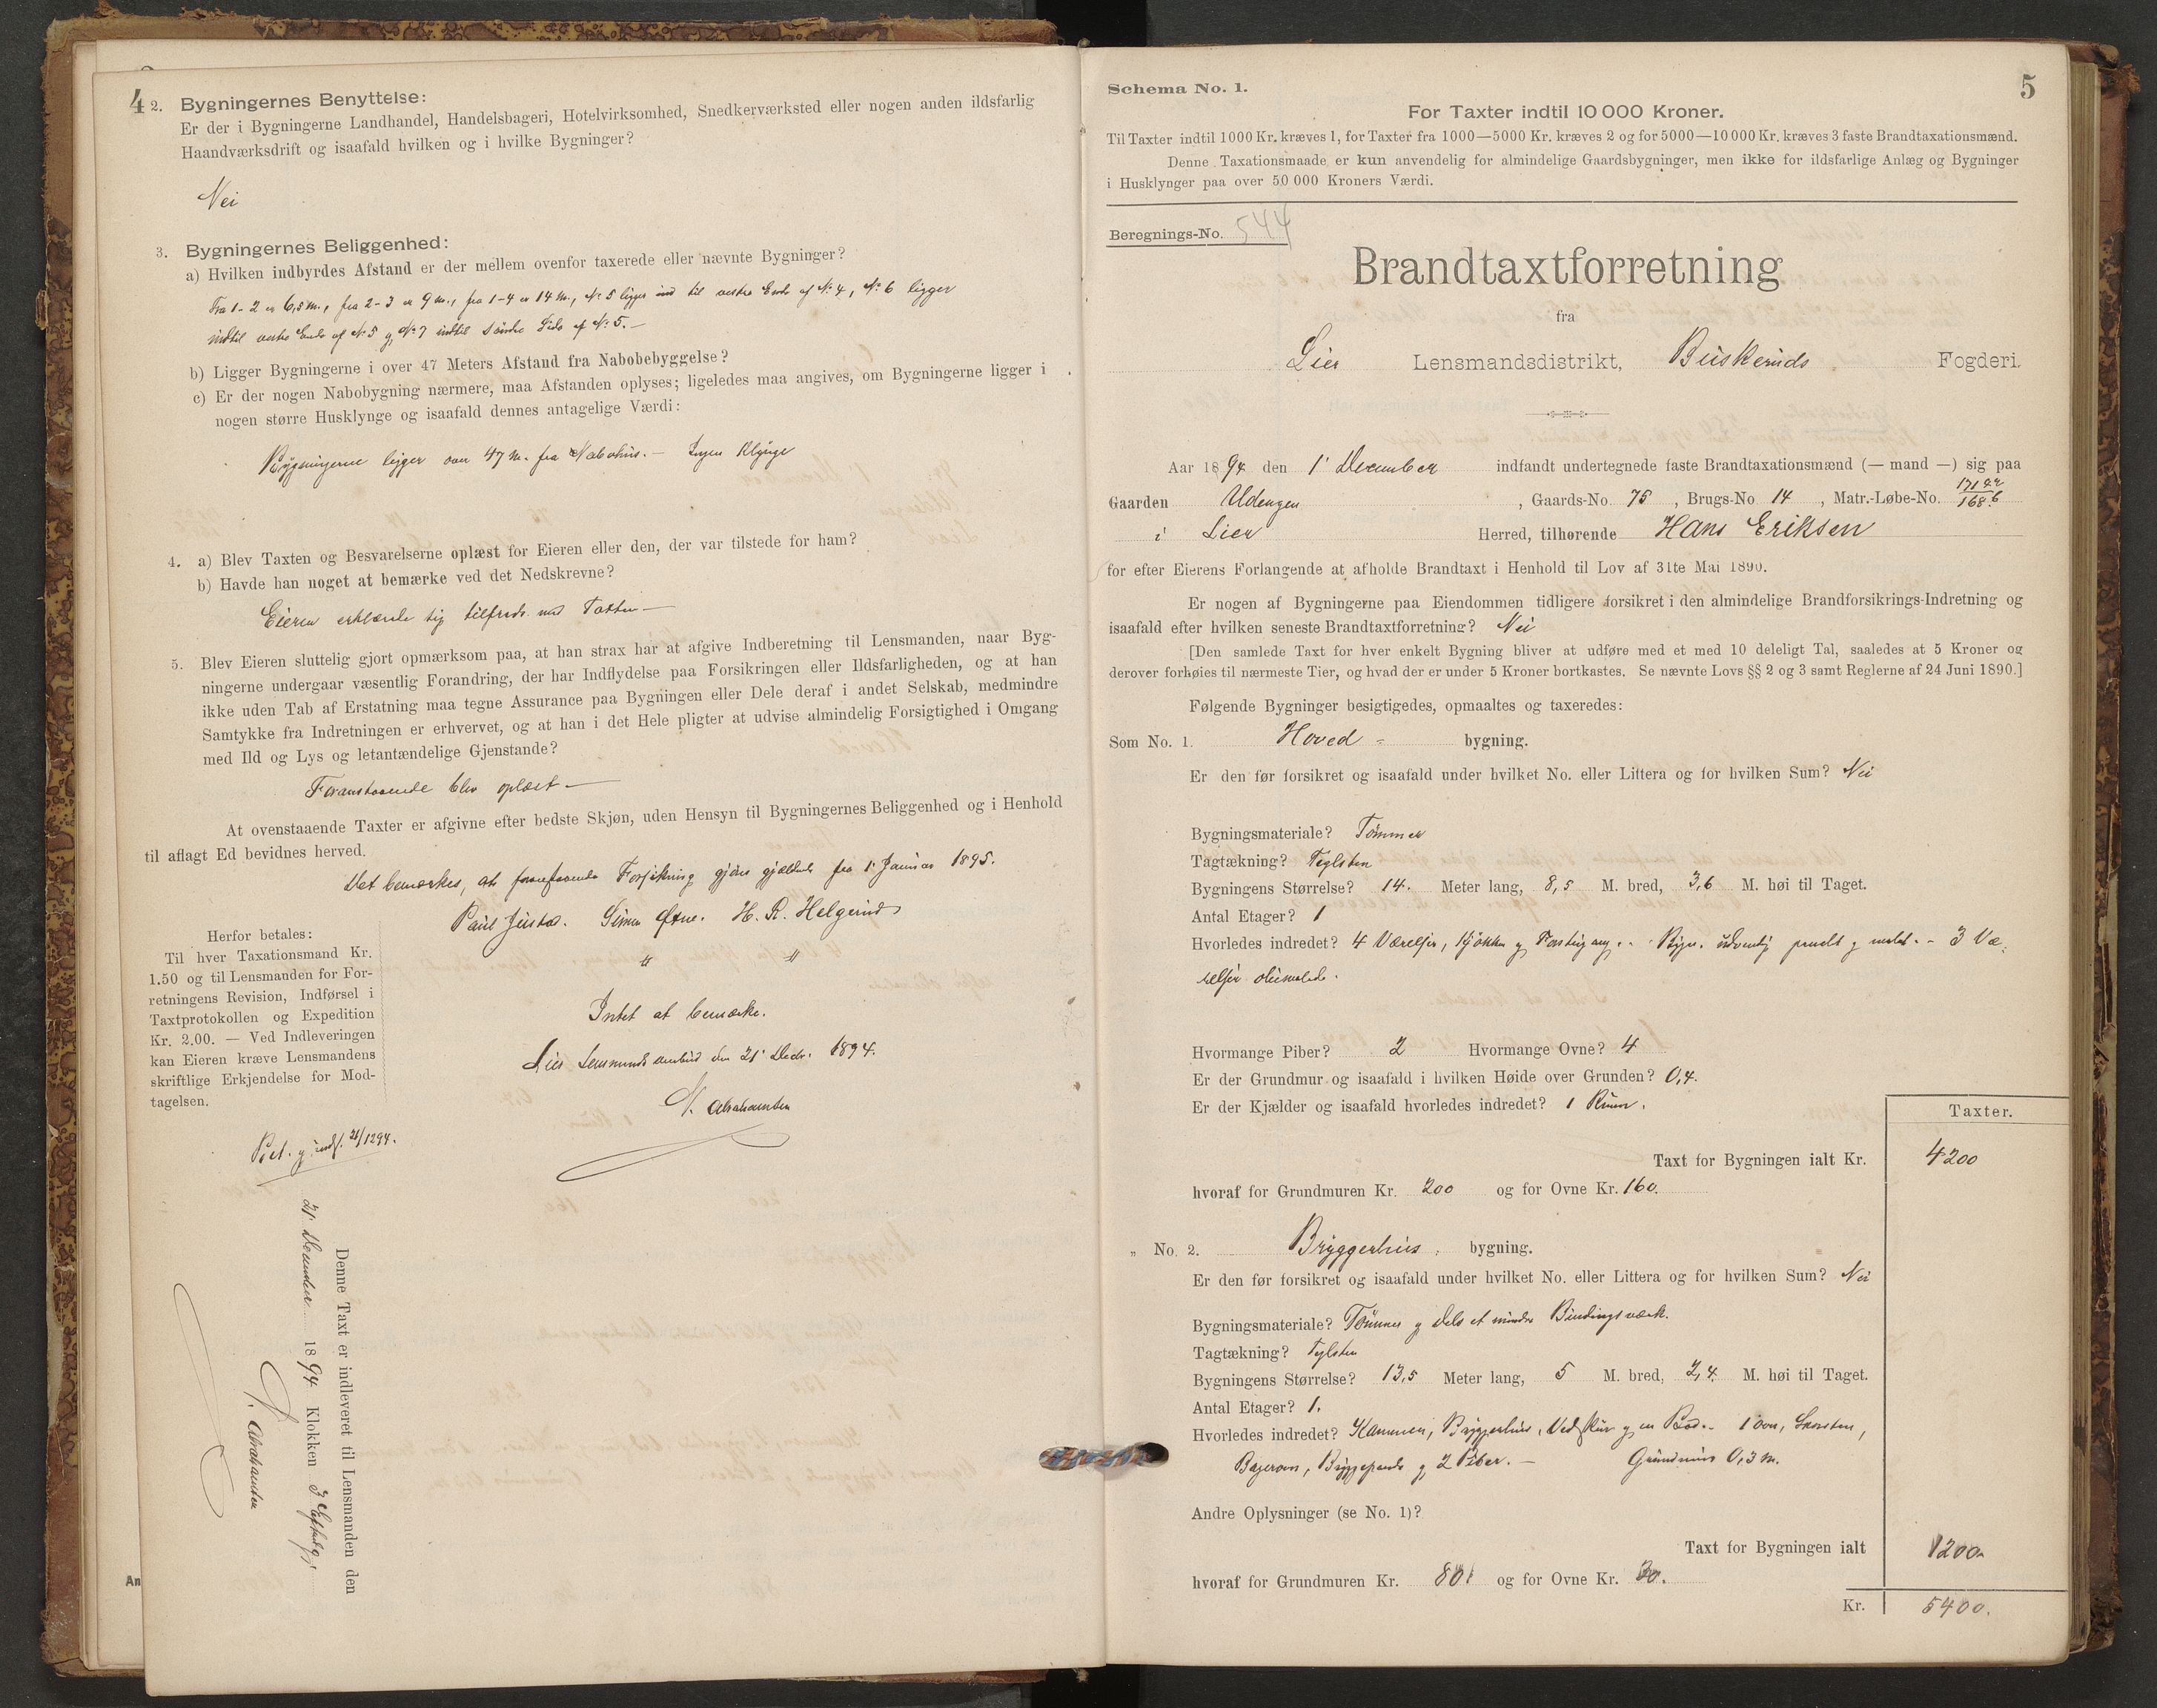 4
2. Bygningernes Benyttelse:
Er der i Bygningerne Landhandel, Handelsbageri, Hotelvirksomhed, Snedkerværksted eller nogen anden ildsfarlig
Haandværksdrift og isaafald hvilken og i hvilke Bygninger?
Nei
3. Bygningernes Beliggenhed:
a) Hvilken indbyrdes Afstand er der mellem ovenfor taxerede eller nævnte Bygninger?
Fra 1-2 er 6,5 m., fra 2-3 er 9 m., fra 1-4 er 14 m., No 5 ligger ind til vestre Ende af No 4, No 6 ligger
indtil vestre Ende af No 5 og No 7 indtil søndre Side af No 5. —
b) Ligger Bygningerne i over 47 Meters Afstand fra Nabobebyggelse?
c) Er der nogen Nabobygning nærmere, maa Afstanden oplyses; ligeledes maa angives, om Bygningerne ligger i
nogen større Husklynge og isaafald dennes antagelige Værdi:
Bygningerne ligger over 47 m. fra Nabohus. — Ingen Klynge
4. a) Blev Taxten og Besvarelserne oplæst for Eieren eller den, der var tilstede for ham?
b) Havde han noget at bemærke ved det Nedskrevne?
Eieren erklærede sig tilfreds med Taxten —
5. Blev Eieren sluttelig gjort opmærksom paa, at han strax har at afgive Indberetning til Lensmanden, naar Byg-
ningerne undergaar væsentlig Forandring, der har Indflydelse paa Forsikringen eller Ildsfarligheden, og at han
ikke uden Tab af Erstatning maa tegne Assurance paa Bygningen eller Dele deraf i andet Selskab, medmindre
Samtykke fra Indretningen er erhvervet, og at han i det Hele pligter at udvise almindelig Forsigtighed i Omgang
med Ild og Lys og letantændelige Gjenstande?
Foranstaaende blev oplæst —
At ovenstaaende Taxter er afgivne efter bedste Skjøn, uden Hensyn til Bygningernes Beliggenhed og i Henhold
til aflagt Ed bevidnes herved.
Det bemærkes, at foranstaaende Forsikring gjøres gjældende fra 1' Januar 1895.
Paul Justad. Simen H. R. Helgerud
Herfor betales:
Til hver Taxationsmand Kr.
1.50 og til Lensmanden for For-
retningens Revision, Indførsel i
Taxtprotokollen og Expedition
Kr. 2.00. — Ved Indleveringen
kan Eieren kræve Lensmandens
skriftlige Erkjendelse for Mod-
tagelsen.
Intet at bemærke.
Lier Lensmandsombud den 21' Decbr. 1894.
Abrahamsen
og indf. 21/12 94.
Denne Taxt er indleveret til Lensmanden den
21' December 1894 Klokken 3 Eftmdg.
Abrahamsen
An
Schema No. 1.
5
For Taxter indtil 10 000 Kroner.
Til Taxter indtil 1000 Kr. kræves 1, for Taxter fra 1000—5000 Kr. kræves 2 og for 5000—10 000 Kr. kræves 3 faste Brandtaxationsmænd.
Denne Taxationsmaade er kun anvendelig for almindelige Gaardsbygninger, men ikke for ildsfarlige Anlæg og Bygninger
i Husklynger paa over 50 000 Kroners Værdi.
Beregnings-No. 544
Brandtaxtforretning
fra
Lier Lensmandsdistrikt, Buskeruds Fogderi.
Aar 1894 den 1' December indfandt undertegnede faste Brandtaxationsmænd (— mand —) sig paa
Gaarden Uldengen, Gaards-No. 75, Brugs-No 14, Matr.-Løbe-No. 171
168 b
i Lier Herred, tilhørende Hans Eriksen
for efter Eierens Forlangende at afholde Brandtaxt i Henhold til Lov af 31te Mai 1890.
Er nogen af Bygningerne paa Eiendommen tidligere forsikret i den almindelige Brandforsikrings-Indretning og
isaafald efter hvilken seneste Brandtaxtforretning? Nei
[Den samlede Taxt for hver enkelt Bygning bliver at udføre med et med 10 deleligt Tal, saaledes at 5 Kroner og
derover forhøies til nærmeste Tier, og hvad der er under 5 Kroner bortkastes. Se nævnte Lovs §§ 2 og 3 samt Reglerne af 24 Juni 1890.]
Følgende Bygninger besigtigedes, opmaaltes og taxeredes:
Som No. 1. Hoved- bygning.
Er den før forsikret og isaafald under hvilket No. eller Littera og for hvilken Sum? Nei
Bygningsmateriale? Tømmer
Tagtækning? Teglsten
Bygningens Størrelse? 14. Meter lang, 8,5 M. bred, 3,6 M. høi til Taget.
Antal Etager? 1
Hvorledes indredet? 4 Værelser, Kjøkken og Forstugang. - Bygn. udvendig panelt og malet. - 3 Væ-
relser oliemalede.
Hvormange Piber? 2 Hvormange Ovne? 4
Er der Grundmur og isaafald i hvilken Høide over Grunden? 0,4.
Er der Kjælder og isaafald hvorledes indredet? 1 Rum.
Taxter.
Taxt for Bygningen ialt Kr. 4200
hvoraf for Grundmuren Kr. 200 og for Ovne Kr. 160.
„ No. 2. Bryggerhus, bygning.
Er den før forsikret og isaafald under hvilket No. eller Littera og for hvilken Sum? Nei
Bygningsmateriale? Tømmer og dels et mindre Bindingsværk.
Tagtækning? Teglsten
Bygningens Størrelse? 13,5 Meter lang, 5 M. bred, 2,4 M. høi til Taget.
Antal Etager? 1.
Hvorledes indredet? Kammer, Bryggerhus, Vedskur og en Bod. - 1 Ovn, Skorsten,
Bagerovn, Bryggepande og 2 Piber. — Grundmur 0,3 m.
Andre Oplysninger (se No. 1)?
Taxt for Bygningen ialt 1200
hvoraf for Grundmuren Kr. 80 og for Ovne Kr. 20.
Kr. 5400.